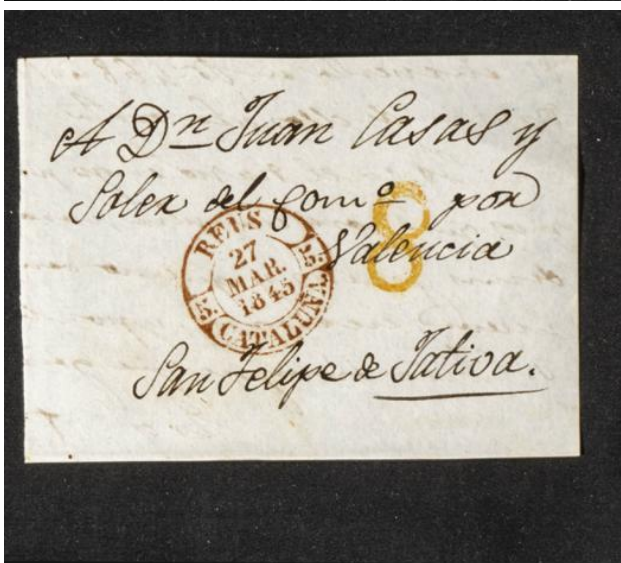 A Dn Juan Casas y
Soler del Comº por
Valencia
8
REUS
27
MAR.
1845
CATALUÑA
San Felipe de Jativa.